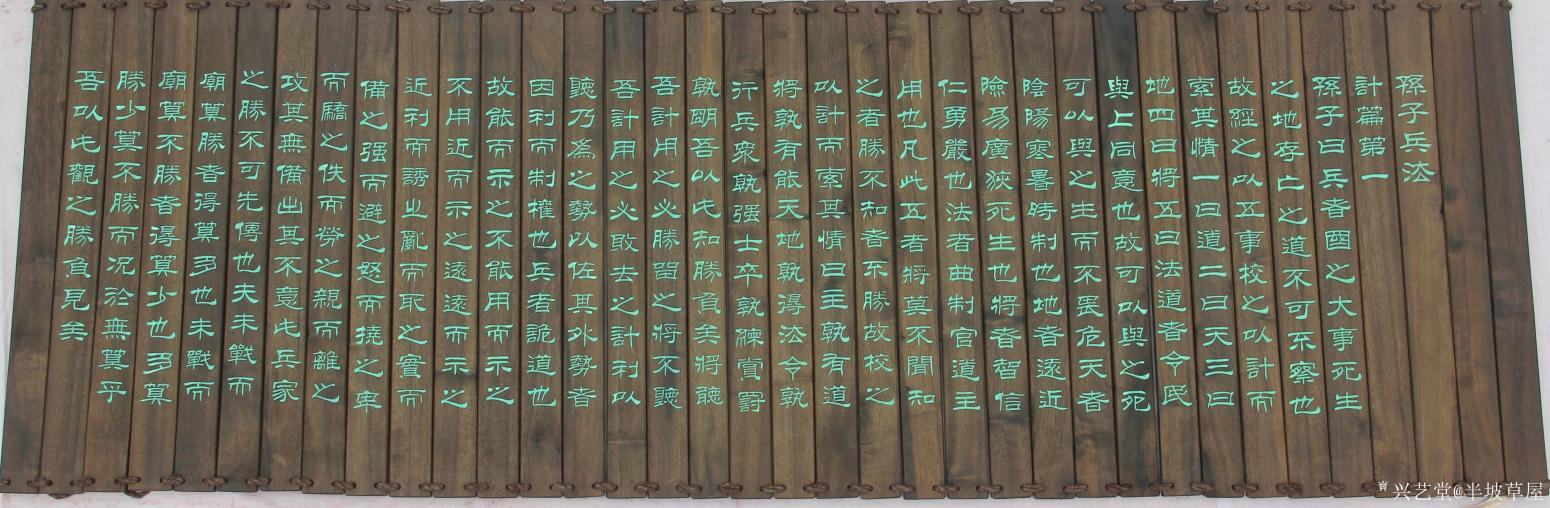 孫子兵法
計篇第一
孫子曰兵者國之大事死生
之地存亡之道不可不察也
故經之以五事校之以計而
索其情一曰道二曰天三曰
地四曰將五曰法道者令民
與上同意也故可以與之死
可以與之生而不畏危天者
陰陽寒暑時制也地者遠近
險易廣狹死生也將者智信
仁勇嚴也法者曲制官道主
用也凡此五者將莫不聞知
之者勝不知者不勝故校之
以計而索其情曰主孰有道
將孰有能天地孰得法令孰
行兵衆孰强士卒孰練賞罰
孰明吾以此知勝負矣將聽
吾計用之必勝留之將不聽
吾計用之必敗去之計利以
聽乃爲之勢以佐其外勢者
因利而制權也兵者詭道也
故能而示之不能用而示之
不用近而示之遠遠而示之
近利而誘之亂而取之實而
備之强而避之怒而撓之卑
而驕之佚而勞之親而離之
攻其無備出其不意此兵家
之勝不可先傳也夫未戰而
廟算勝者得算多也未戰而
廟算不勝者得算少也多算
勝少算不勝而况於無算乎
吾以此觀之勝負見矣
兴艺堂@半坡草屋